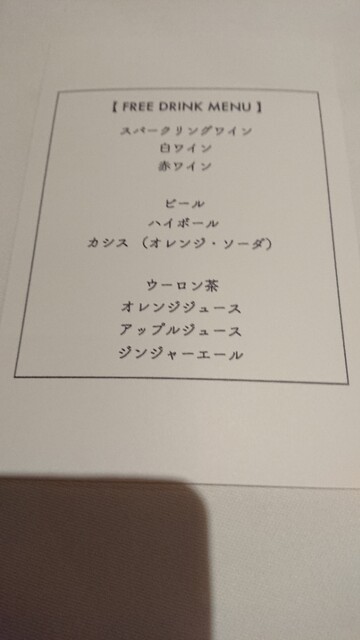 【 FREE DRINK MENU 】
スパークリングワイン
白ワイン
赤ワイン
ビール
ハイボール
カシス （オレンジ・ソーダ）
ウーロン茶
オレンジジュース
アップルジュース
ジンジャーエール